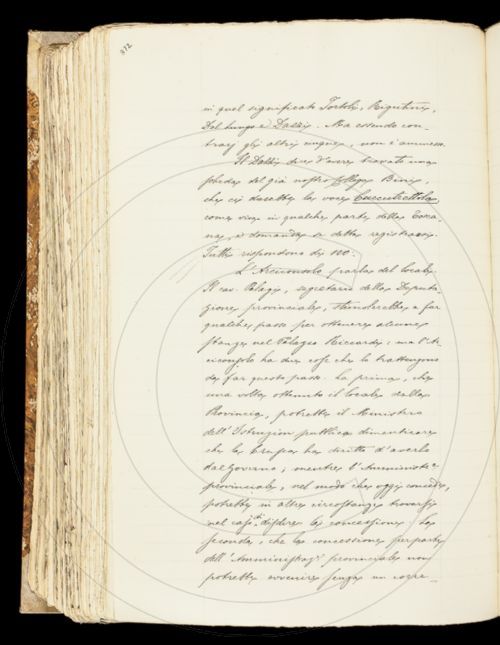 312
in quel significato Tortoli, Rigutini,
Del Lungo e Dalli. Ma essendo con-
trarj gli altri cinque, non è ammessa.
Il Dalli dice d'avere trovato una
scheda del già nostro Collega Bini,
che ci darebbe la voce Cuccutrettola
come viva in qualche parte della Tosca-
na, e domanda se debba registrarsi.
Tutti rispondono di no.
L'Arciconsolo parla del locale.
Il cav. Pelagi, segretario della Deputa-
zione provinciale, starebbe a far
qualche passo per ottenere alcune
stanze nel Palazzo Riccardi: ma l'Ar-
ciconsolo ha due cose che lo trattengono
da far questo passo. La prima, che
una volta ottenuto il locale dalla
Provincia, potrebbe il Ministro
dell'Istruzion pubblica dimenticare
che la Crusca ha diritto d'averlo
dal Governo; mentre l'Amministr.e
provinciale, nel modo che oggi concede,
potrebbe in altre circostanze trovarsi
nel caso di disdire la concessione. La
seconda, che la concessione per parte
dell'Amministraz.e provinciale non
potrebbe avvenire senza un corre-